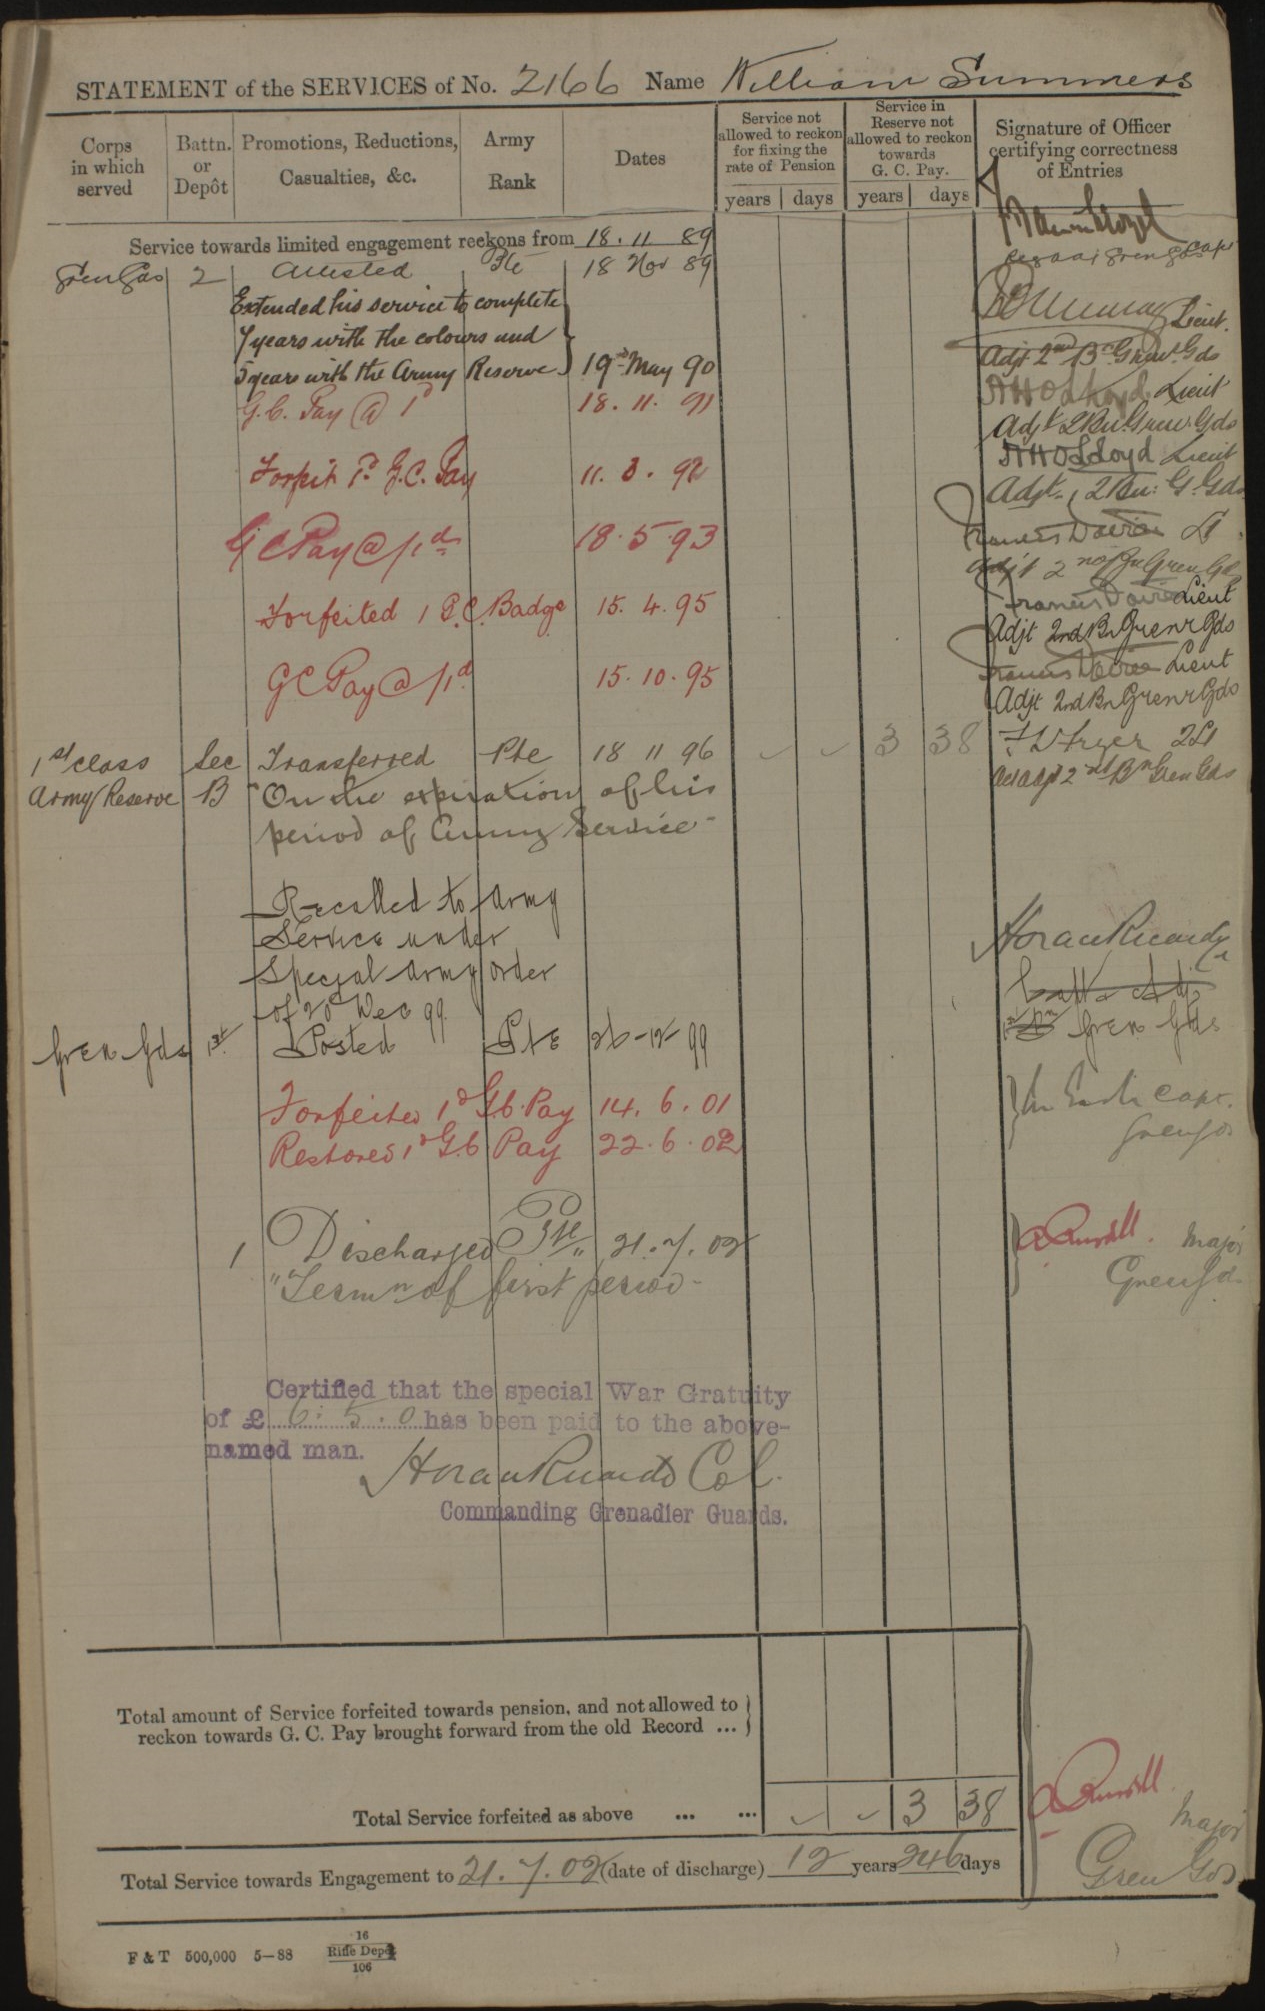 STATEMENT of the SERVICES of No. 2166 Name William Summers
Corps in which served
Battn. or Depôt
Promotions, Reductions, Casualties, &c.
Army Rank
Dates
Service not allowed to reckon for fixing the rate of Pension
years days
Service in Reserve not allowed to reckon towards G. C. Pay.
years days
Signature of Officer certifying correctness of Entries
Service towards limited engagement reckons from 18. 11 89
Gren Gds 2 Attested Pte 18 Nov 89
Extended his service to complete
7 years with the colours and
5 years with the Army Reserve } 19th May 90
Lieut.
Adjt 2nd Bn Gren. Gds
G.C. Pay @ 1d 18. 11. 91
AHO Lloyd Lieut
Adjt 2 Bn. Gren. Gds
Forfeit 1d G.C. Pay 11. 3. 92
AHO Lloyd Lieut
Adjt. 2 Bn: G. Gds
G C Pay @ 1d 18. 5. 93
Francis Davies Lt
Adjt 2nd Bn Gren Gds
Forfeited 1 G.C. Badge 15. 4. 95
Francis Davies Lieut
Adjt 2nd Bn Grenr Gds
G C Pay @ 1d 15. 10. 95
Francis Davies Lieut
Adjt 2nd Bn Grenr Gds
1st Class Sec Transferred Pte 18 11 96 3 38 2Lt
Army Reserve B "On the expiration of his
period of Army Service"
Act Adjt 2nd Bn Gren Gds
Recalled to Army
Service under
Special Army Order
of 20 Dec 99.
Horace Ricardo
Capt & Adj
1st Bn Gren Gds
Gren Gds 1st Posted Pte 26-12-99
Forfeited 1d G.C. Pay 14. 6. 01
Capt.
Restored 1d G.C Pay 22. 6. 02
1 Discharged Pte 21. 7. 02
Major
"Termn of first period"
Gren Gds
Certified that the special War Gratuity
of £ 6: 5. 0 has been paid to the above-
named man.
Horace Ricardo Col.
Commanding Grenadier Guards.
Total amount of Service forfeited towards pension, and not allowed to
reckon towards G. C. Pay brought forward from the old Record ... }
Total Service forfeited as above ... ... 3 38
Major
Total Service towards Engagement to 21. 7. 02 (date of discharge) 12 years 246 days
Gren Gds
F & T 500,000 5—88 16 Rifle Depôt 106